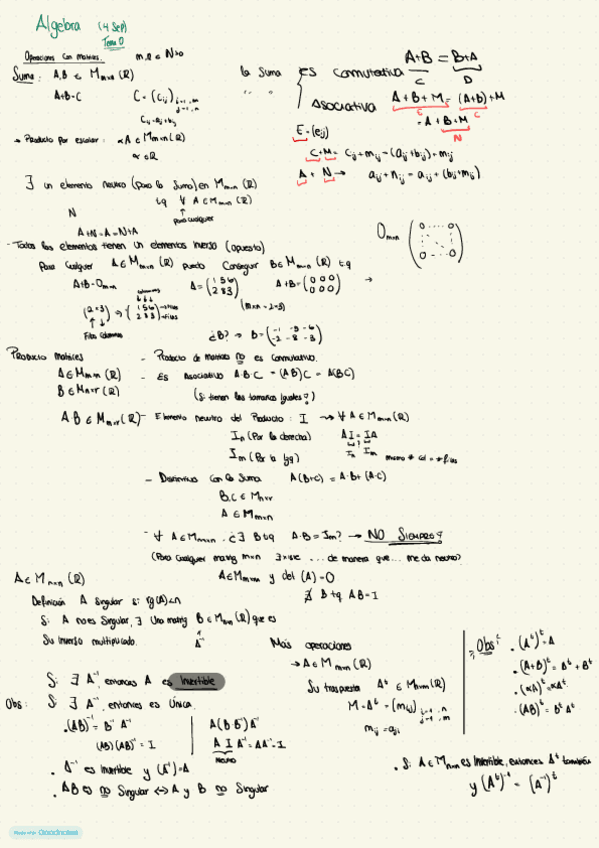 Algebra (4 Sep)
Tema 0
Operaciones con matrices. m,n ∈ N>0
Suma: A,B ∈ Mmxn (R)
A+B=C C = (cij) i=1..m j=1..n
cij = aij + bij
→ Producto por escalar: αA ∈ Mmxn(R)
α ∈ R
la suma es conmutativa A+B = B+A
C D
Asociativa A+B+M = (A+B)+M
E C
= A + B+M
N
E = (eij)
C+M = cij + mij = (aij + bij) + mij
A + N → aij + nij = aij + (bij + mij)
∃ un elemento neutro (para la suma) en Mmxn (R)
tq ∀ A ∈ Mmxn (R)
para cualquier
N
A+N = A = N+A
- Todos los elementos tienen un elementos inverso (opuesto)
Para cualquier A ∈ Mmxn (R) puedo conseguir B ∈ Mmxn (R) t.q
A+B = 0mxn A = (1 5 6 / 2 8 3) A+B = (0 0 0 / 0 0 0) →
0mxn (0 ... 0 / 0 ... 0)
columnas
(2x3) → (1 5 6 / 2 8 3) → filas → filas
(mxn = 2x3)
Filas columnas
¿B? → B = (-1 -5 -6 / -2 -8 -3)
Producto matrices
- Producto de matrices no es conmutativo.
A ∈ Mmxn (R)
- Es Asociativo A·B·C = (AB)C = A(BC)
B ∈ Mnxr (R)
(si tienen los tamaños iguales)
A·B ∈ Mmxr (R)
- Elemento neutro del Producto: I → ∀ A ∈ Mmxn (R)
In (Por la derecha) AI = IA
Im (Por la izq) In Im mismo # col = # filas
- Distributivo con la suma A(B+C) = A·B + (A·C)
B,C ∈ Mnxr
A ∈ Mmxn
- ∀ A ∈ Mmxn, ¿∃ B tq A·B = Im? → NO Siempre
(Para cualquier matriz mxn existe ... de manera que... me da neutro?)
A ∈ Mnxn (R) A ∈ Mmxn y det (A) = 0
∄ B tq AB = I
Definición A singular si rg(A)<n
Si A no es Singular, ∃ Una matriz B ∈ Mnxn (R) que es
Su inverso multiplicado. A⁻¹
Si ∃ A⁻¹, entonces A es Invertible
Obs: Si ∃ A⁻¹, entonces es Única
· (AB)⁻¹ = B⁻¹ A⁻¹ A(B B⁻¹)A⁻¹
(AB)(AB)⁻¹ = I A I A⁻¹ = AA⁻¹ = I
Neutro
· A⁻¹ es invertible y (A⁻¹)⁻¹ = A
· AB es no Singular ↔ A y B no Singular
Más operaciones
→ A ∈ Mmxn (R)
Su traspuesta Aᵗ ∈ Mnxm (R)
M = Aᵗ = (mij) i=1..n j=1..m
mij = aji
Obs:
· (Aᵗ)ᵗ = A
· (A+B)ᵗ = Aᵗ + Bᵗ
· (αA)ᵗ = αAᵗ
· (AB)ᵗ = Bᵗ Aᵗ
· Si A ∈ Mnxn es invertible, entonces Aᵗ también
y (Aᵗ)⁻¹ = (A⁻¹)ᵗ
Made with Goodnotes